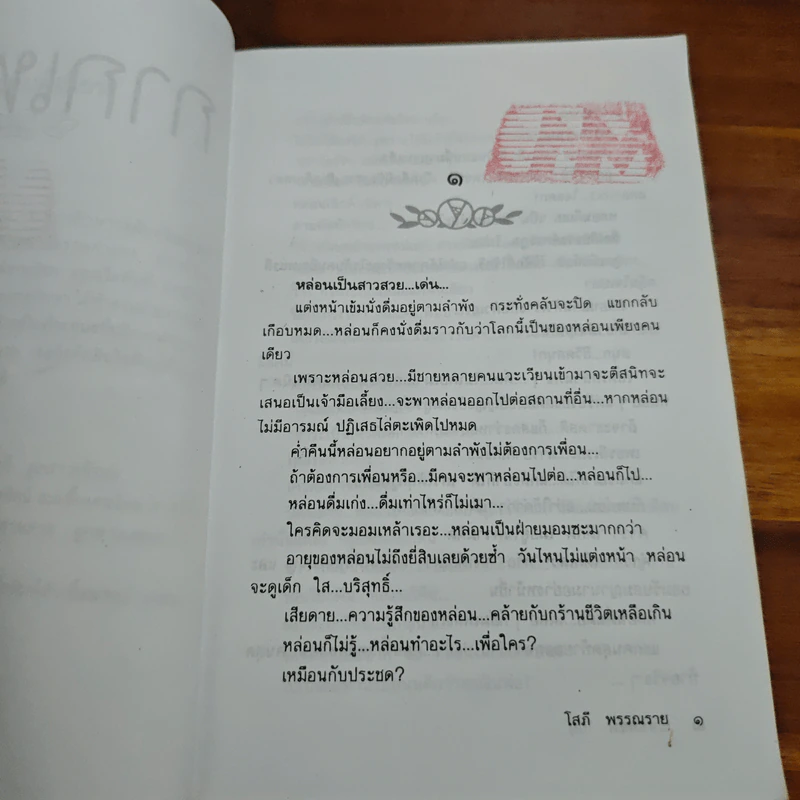 ๑
หล่อนเป็นสาวสวย...เด่น...
แต่งหน้าเข้มนั่งดื่มอยู่ตามลำพัง กระทั่งคลับจะปิด แขกกลับ
เกือบหมด...หล่อนก็คงนั่งดื่มราวกับว่าโลกนี้เป็นของหล่อนเพียงคน
เดียว
เพราะหล่อนสวย...มีชายหลายคนแวะเวียนเข้ามาจะตีสนิทจะ
เสนอเป็นเจ้ามือเลี้ยง...จะพาหล่อนออกไปต่อสถานที่อื่น...หากหล่อน
ไม่มีอารมณ์ ปฏิเสธไล่ตะเพิดไปหมด
ค่ำคืนนี้หล่อนอยากอยู่ตามลำพังไม่ต้องการเพื่อน...
ถ้าต้องการเพื่อนหรือ...มีคนจะพาหล่อนไปต่อ...หล่อนก็ไป...
หล่อนดื่มเก่ง...ดื่มเท่าไหร่ก็ไม่เมา...
ใครคิดจะมอมเหล้าเรอะ...หล่อนเป็นฝ่ายมอมซะมากกว่า
อายุของหล่อนไม่ถึงยี่สิบเลยด้วยซ้ำ วันไหนไม่แต่งหน้า หล่อน
จะดูเด็ก ใส...บริสุทธิ์...
เสียดาย...ความรู้สึกของหล่อน...คล้ายกับกร้านชีวิตเหลือเกิน
หล่อนก็ไม่รู้...หล่อนทำอะไร...เพื่อใคร?
เหมือนกับประชด?
โสภี พรรณราย ๑